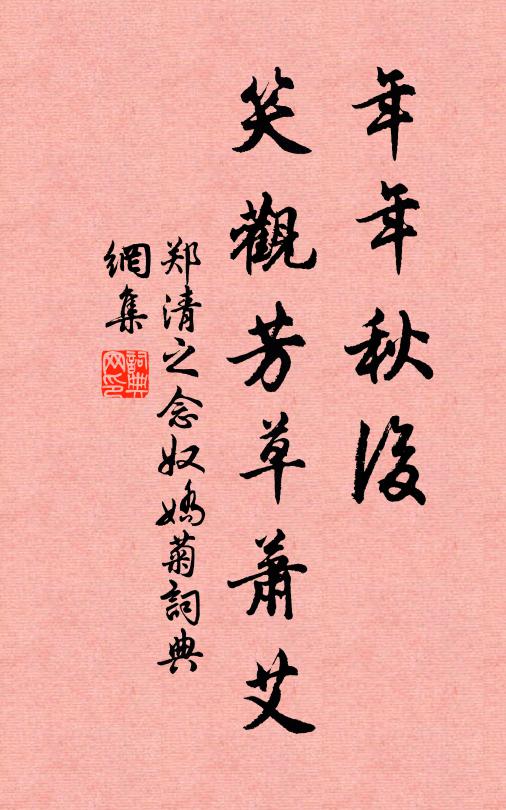 年年秋後
笑觀芳草蕭艾
郑清之念奴嬌菊詞典
網集
詞典
网印